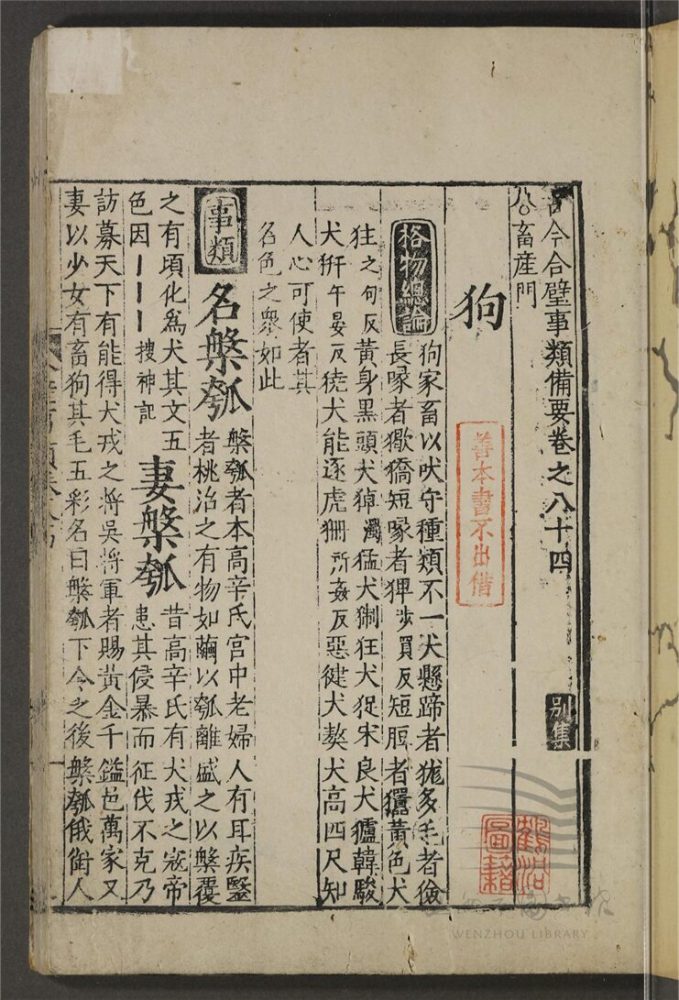 古今合璧事類備要卷之八十四 別集
畜産門
狗
格物總論
狗家畜以吠守種類不一犬懸蹄者犹多毛者儉
長喙者獥獢短喙者猈步買反短脰者玃黃色犬
往之句反黃身黑頭犬猛犬猘狂犬捉宋良犬獹韓駿
犬犴午晏反獟犬能逐虎狦所姦反惡健犬獒犬高四尺知
人心可使者其
名色之衆如此
事類
名槃瓠
槃瓠者本高辛氏宮中老婦人有耳疾醫
者桃治之有物如繭以瓠離盛之以槃覆
之有頃化爲犬其文五
色因丨丨丨搜神記
妻槃瓠
昔高辛氏有犬戎之寇帝
患其侵暴而征伐不克乃
訪募天下有能得犬戎之將吳將軍者賜黃金千鎰邑萬家又
妻以少女有畜狗其毛五彩名曰槃瓠下令之後槃瓠俄銜人
善本書不出借
圖籍
WENZHOU LIBRARY